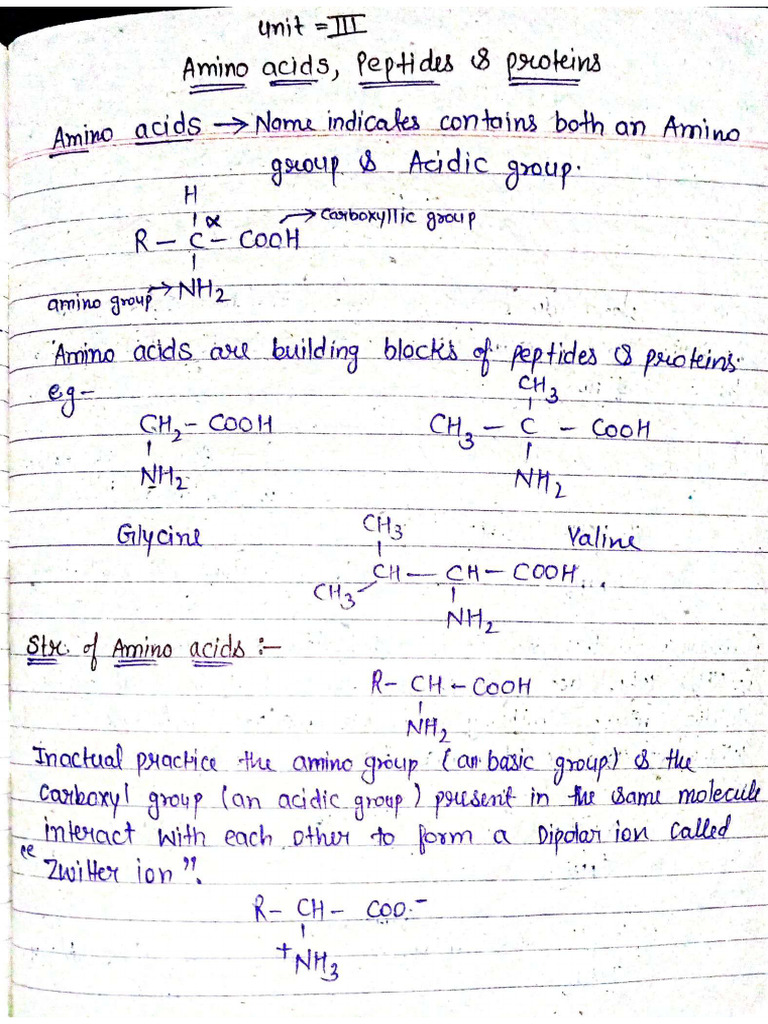 Unit = III
Amino acids, Peptides & proteins
Amino acids → Name indicates contains both an Amino
group & Acidic group.
H
α → Carboxyllic group
R – C – COOH
amino group → NH2
Amino acids are building blocks of peptides & proteins.
eg–
CH3
CH2 – COOH CH3 – C – COOH
NH2 NH2
Glycine Valine
CH3
CH – CH – COOH
CH3
NH2
Str. of Amino acids :–
R – CH – COOH
NH2
Inactual practice the amino group (an basic group) & the
carboxyl group (an acidic group) present in the same molecule
interact with each other to form a Dipolar ion called
"Zwitter ion".
R – CH – COO.–
+NH3